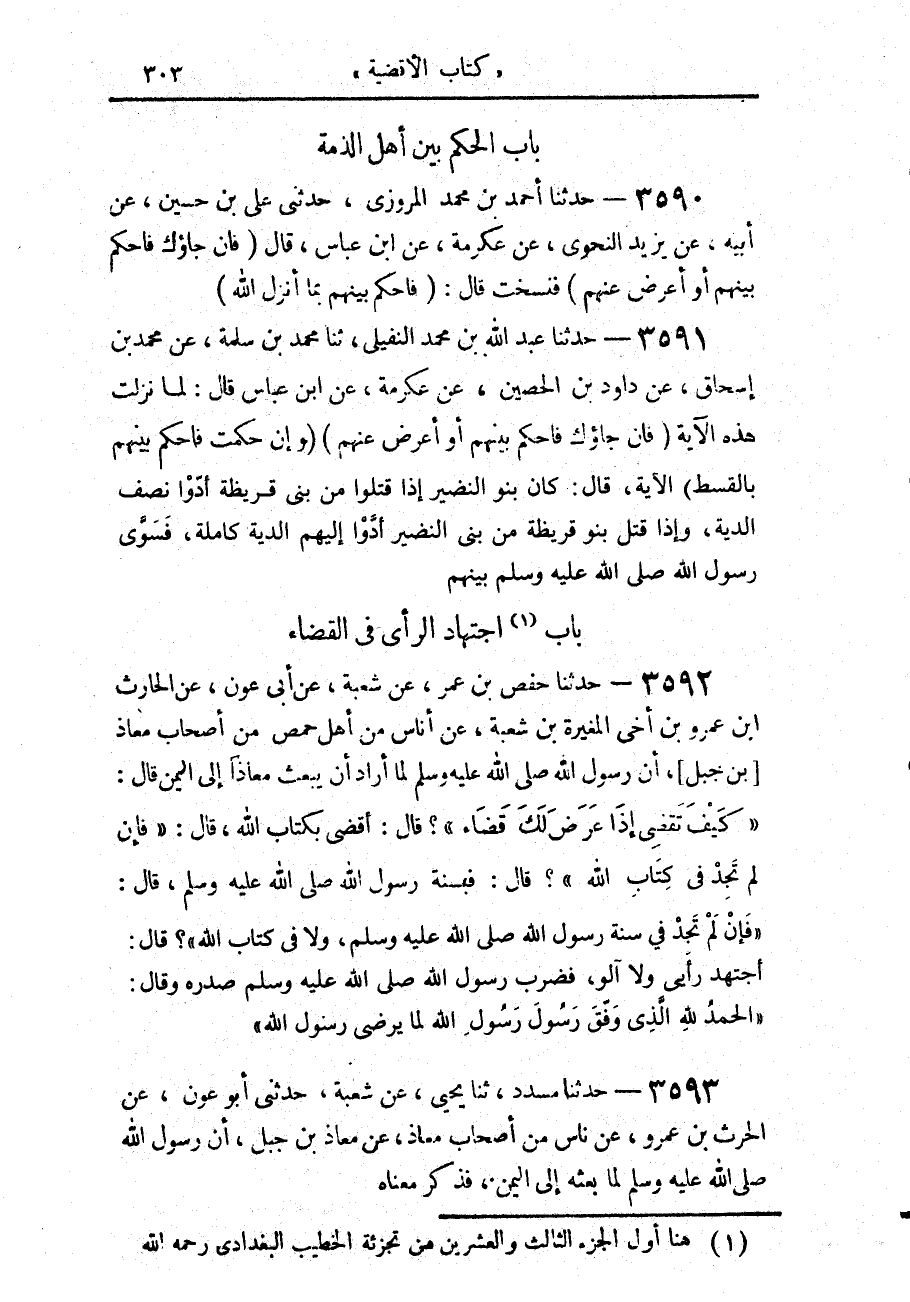 « كتاب الأقضية » ٣٠٣
باب الحكم بين أهل الذمة
٣٥٩٠ – حدثنا أحمد بن محمد المروزى ، حدثنى على بن حسين ، عن
أبيه ، عن يزيد النحوى ، عن عكرمة ، عن ابن عباس ، قال ( فان جاؤك فاحكم
بينهم أو أعرض عنهم ) فنسخت قال : ( فاحكم بينهم بما أنزل الله )
٣٥٩١ – حدثنا عبد الله بن محمد النفيلى ، ثنا محمد بن سلمة ، عن محمد بن
إسحاق ، عن داود بن الحصين ، عن عكرمة ، عن ابن عباس قال : لما نزلت
هذه الآية ( فان جاؤك فاحكم بينهم أو أعرض عنهم ) (و إن حكمت فاحكم بينهم
بالقسط) الآية، قال: كان بنو النضير إذا قتلوا من بنى قريظة أدّوْا نصف
الدية، وإذا قتل بنو قريظة من بنى النضير أدَّوْا إليهم الدية كاملة، فَسَوَّى
رسول الله صلى الله عليه وسلم بينهم
باب (١) اجتهاد الرأى فى القضاء
٣٥٩٢ – حدثنا حفص بن عمر ، عن شعبة ، عن أبى عون ، عن الحارث
ابن عمرو بن أخى المغيرة بن شعبة ، عن أناس من أهل حمص من أصحاب معاذ
[بن جبل]، أن رسول الله صلى الله عليه وسلم لما أراد أن يبعث معاذاً إلى اليمن قال :
« كَيْفَ تَقضِى إذَا عَرَضَ لَكَ قَضَاء »؟ قال : أقضى بكتاب الله ، قال : « فإن
لم تَجِدْ فى كِتَابِ الله »؟ قال : فبسنة رسول الله صلى الله عليه وسلم ، قال :
«فَإنْ لَمْ تَجِدْ في سنة رسول الله صلى الله عليه وسلم، ولا فى كتاب الله»؟ قال:
أجتهد رأيى ولا آلو، فضرب رسول الله صلى الله عليه وسلم صدره وقال:
«الحمدُ للهِ الَّذِى وَفّقَ رَسُولَ رَسُولِ الله لما يرضى رسول الله»
٣٥٩٣ – حدثنا مسدد ، ثنا يحيى ، عن شعبة ، حدثنى أبو عون ، عن
الحرث بن عمرو ، عن ناس من أصحاب معاذ، عن معاذ بن جبل ، أن رسول الله
صلى الله عليه وسلم لما بعثه إلى اليمن ، فذكر معناه
(١) هنا أول الجزء الثالث والعشرين من تجزئة الخطيب البغدادى رحمه الله